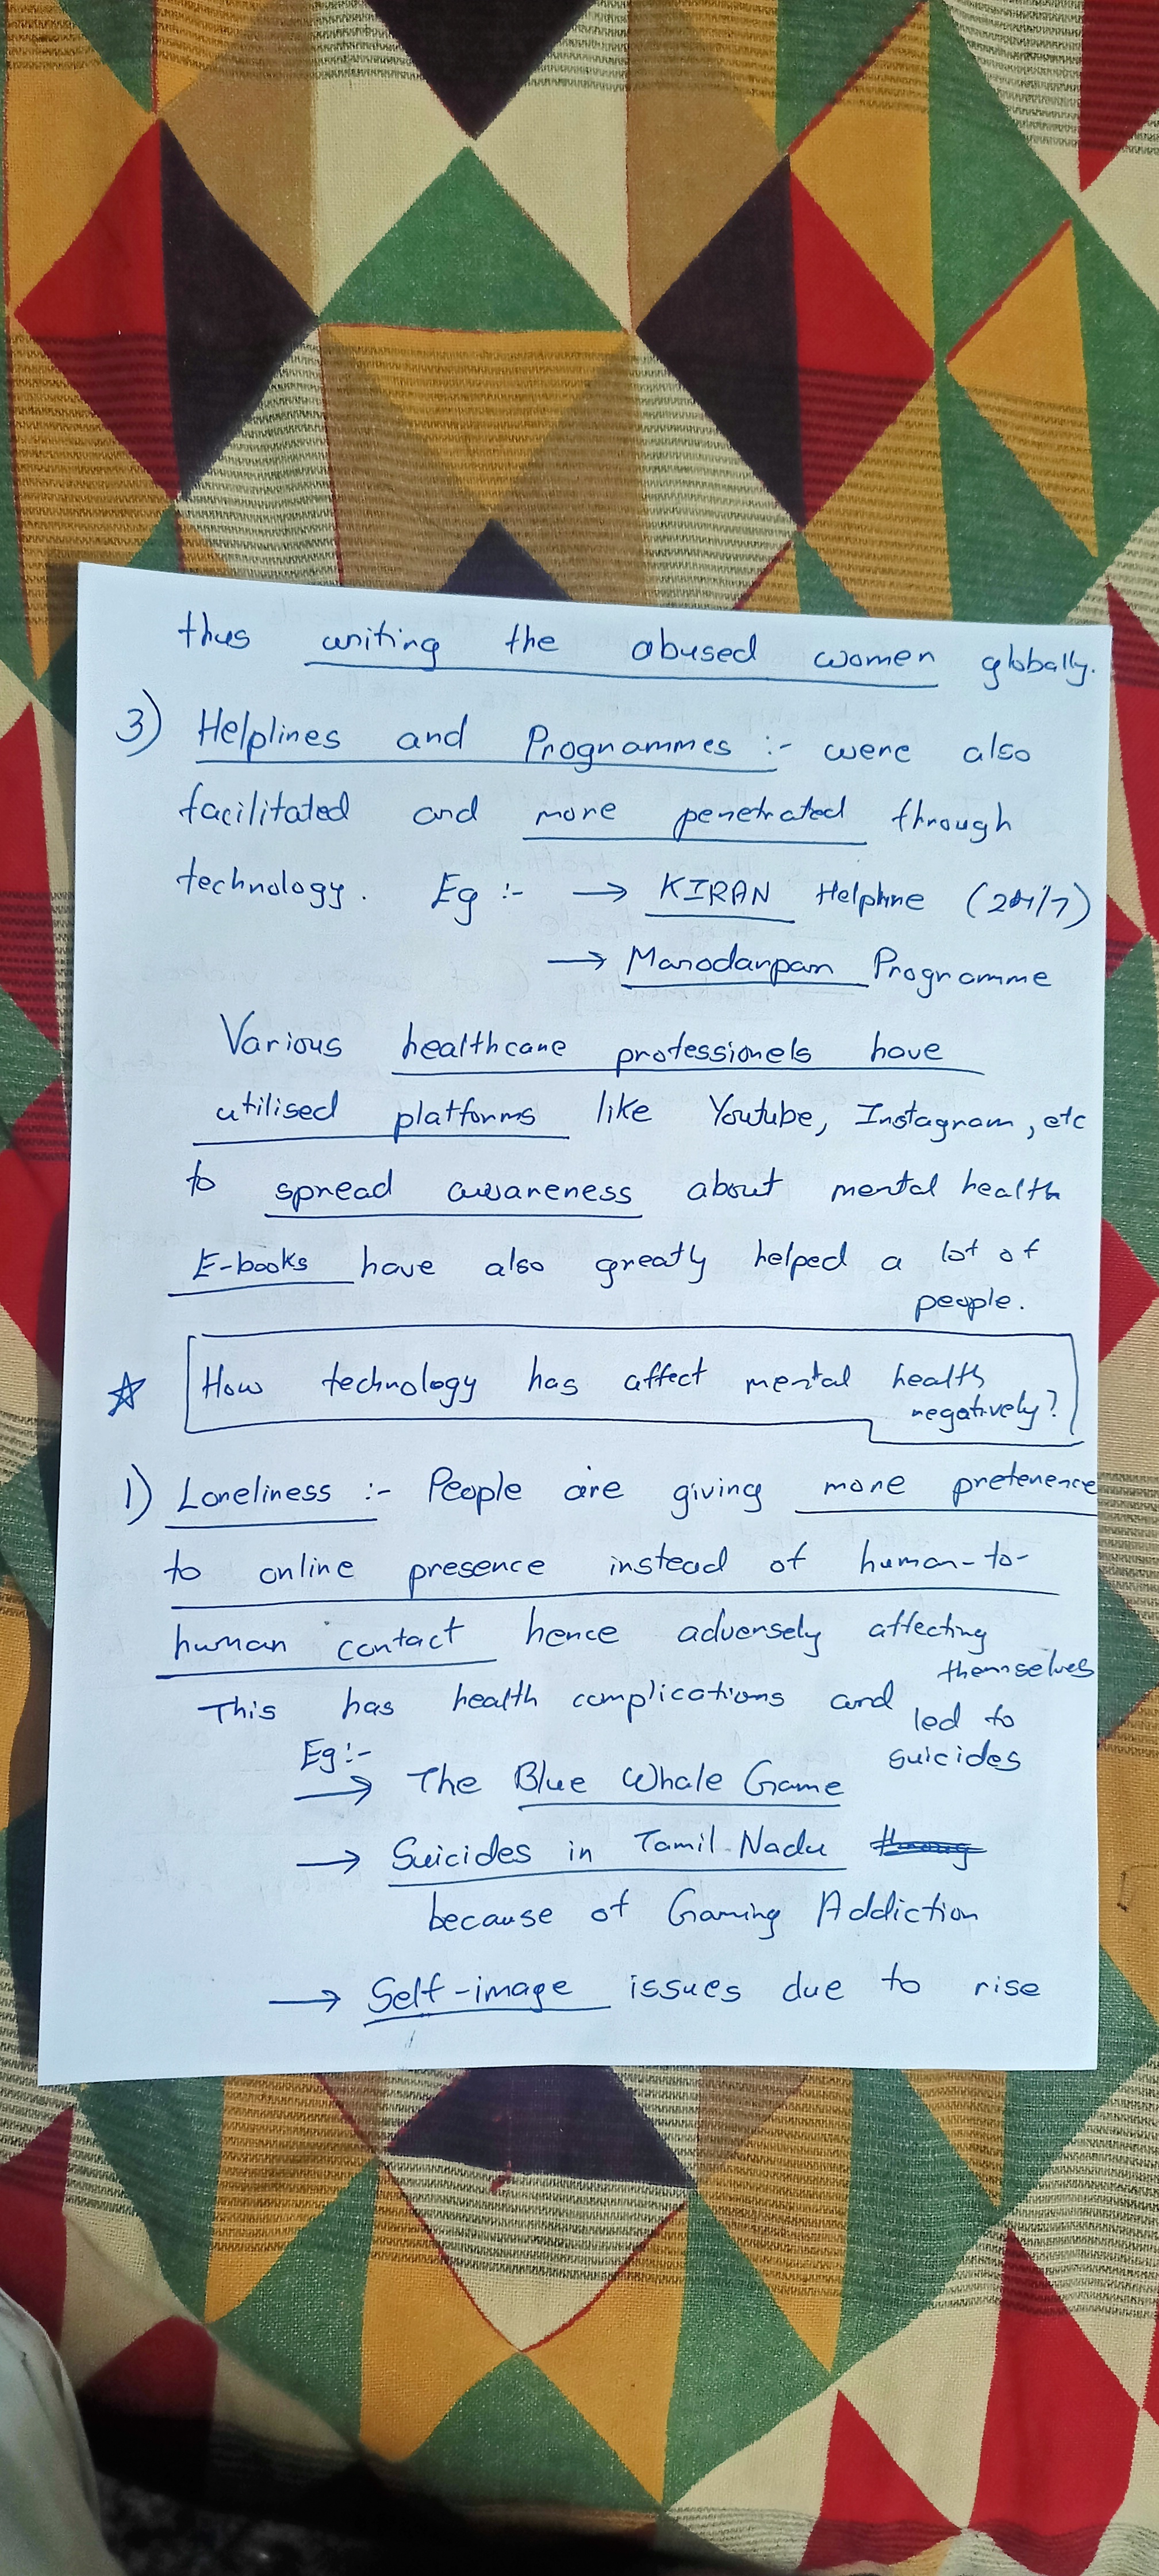 thus uniting the abused women globally.
3) Helplines and Programmes :- were also
facilitated and more penetrated through
technology. Eg :- → KIRAN Helpline (24/7)
→ Manodarpan Programme
Various healthcare professionels have
utilised platforms like Youtube, Instagram, etc
to spread awareness about mental health
E-books have also greatly helped a lot of
people.
☆ How technology has affect mental health
negatively?
1) Loneliness :- People are giving more preference
to online presence instead of human-to-
human contact hence adversely affecting
themselves
This has health complications and led to
suicides
Eg :-
→ The Blue Whale Game
→ Suicides in Tamil Nadu
because of Gaming Addiction
→ Self-image issues due to rise